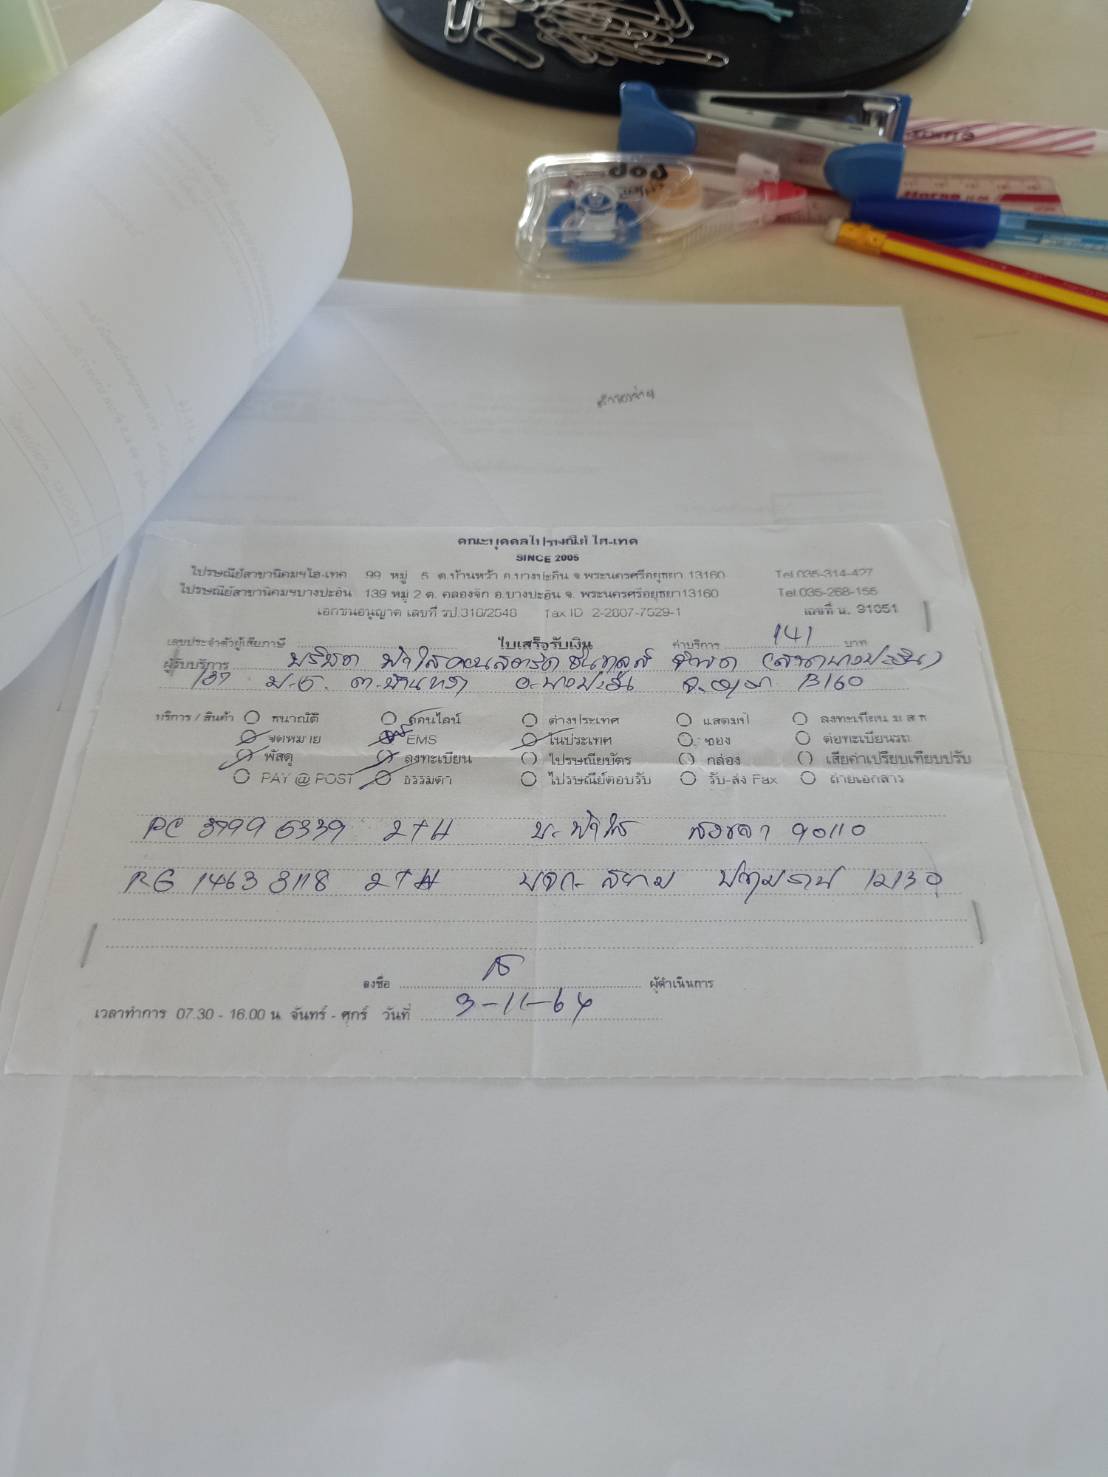 คณะบุคคลไปรษณีย์ ไฮ-เทค
SINCE 2005
ไปรษณีย์สาขานิคมฯไฮ-เทค 99 หมู่ 5 ต.บ้านหว้า อ.บางปะอิน จ.พระนครศรีอยุธยา 13160 Tel.035-314-427
ไปรษณีย์สาขานิคมฯบางปะอิน 139 หมู่ 2 ต. คลองจิก อ.บางปะอิน จ. พระนครศรีอยุธยา 13160 Tel.035-268-155
เอกชนอนุญาต เลขที่ รป.310/2548 Tax ID 2-2807-7529-1 เลขที่ น. 31051
เลขประจำตัวผู้เสียภาษี ใบเสร็จรับเงิน ค่าบริการ 141 บาท
ผู้รับบริการ บริษัท จำกัด
137 ม.5 ต.บ้านหว้า อ.บางปะอิน จ.อยุธยา 13160
บริการ / สินค้า ธนาณัติ ธนาณัติออนไลน์ ต่างประเทศ แสตมป์
จดหมาย EMS ในประเทศ ซอง ต่อทะเบียนรถ
พัสดุ ลงทะเบียน ไปรษณียบัตร กล่อง เสียค่าเปรียบเทียบปรับ
PAY @ POST ธรรมดา ไปรษณีย์ตอบรับ รับ-ส่ง Fax ถ่ายเอกสาร
3999 5339 2TH สงขลา 90110
RG 1463 3118 2TH สยาม ปทุมธานี 12130
ลงชื่อ ผู้ดำเนินการ
เวลาทำการ 07.30 - 16.00 น. จันทร์ - ศุกร์ วันที่ 3-11-64